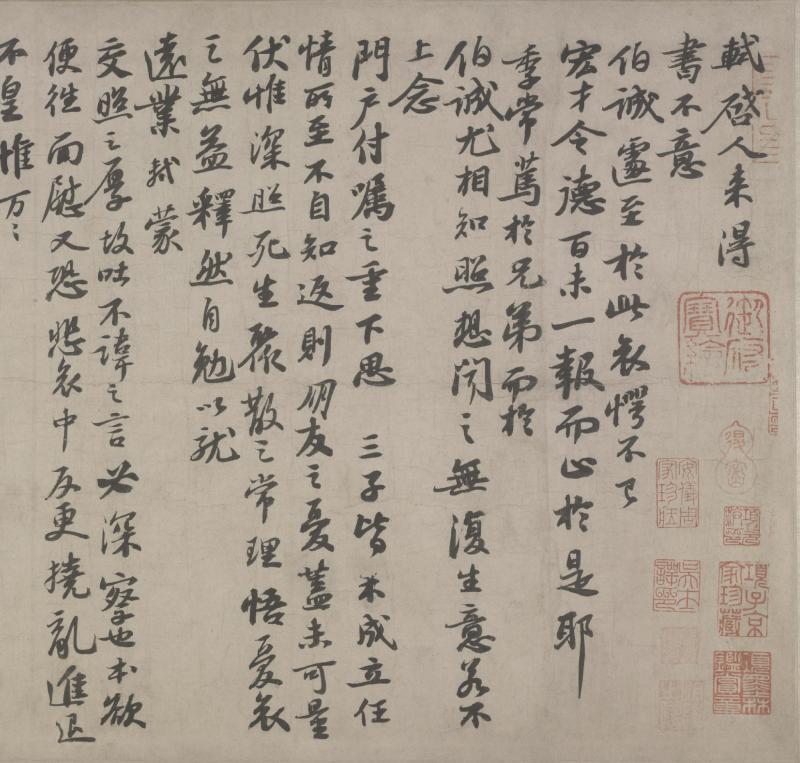 軾啓人来得
書不意
伯誠遽至於此哀愕不已
宏才令德百未一報而止於是耶
季常篤於兄弟而於
伯誠尤相知照想聞之無復生意若不
上念
門户付囑之重下思三子皆未成立任
情所至不自知返則朋友之憂蓋未可量
伏惟深照死生聚散之常理悟憂哀
之無益釋然自勉以就
遠業軾蒙
交照之厚故吐不諱之言必深察也本欲
便往面慰又恐悲哀中反更撓亂進退
不皇惟万〻
御府寶繪
安儀周家珍藏
項子京家珍藏
項墨林鑑賞章